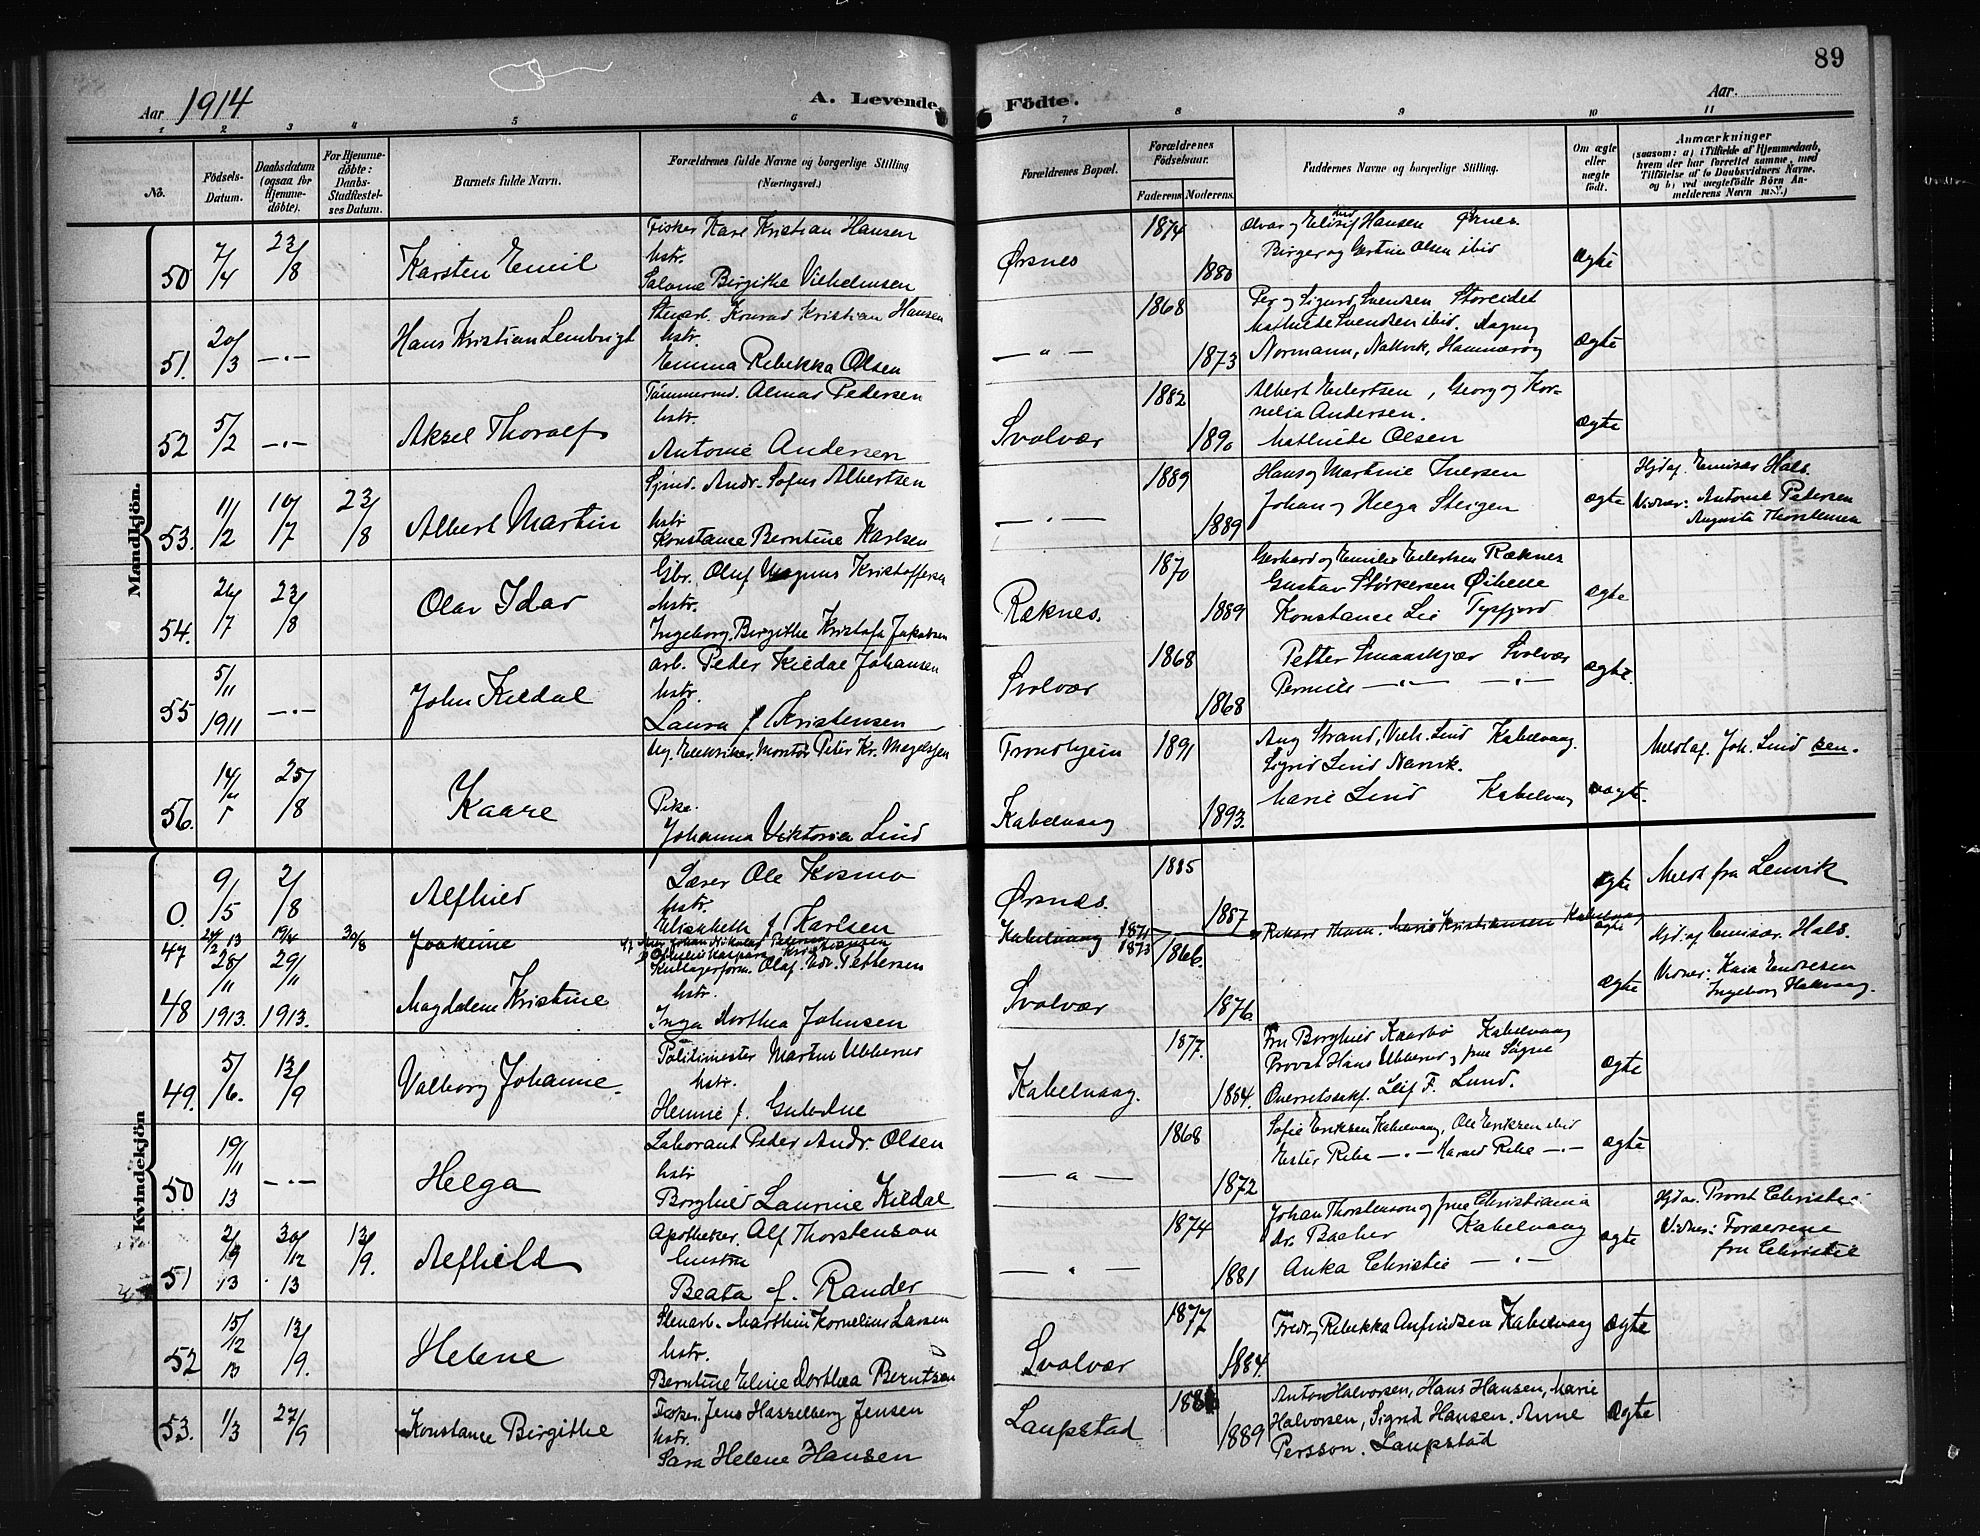 89
Aar 1914
A. Levende
Födte.
Aar
1 2 3 4 5 6 7 8 9 10 11
No.
Födsels-Datum.
Daabsdatum (ogsaa for Hjemme-döbte).
For Hjemme-döbte: Daabs-Stadfæstel-ses Datum.
Barnets fulde Navn.
Forældrenes fulde Navne og borgerlige Stilling (Næringsvei.)
Forældrenes Bopæl.
Forældrenes Födselsaar.
Faderens
Moderens.
Faddernes Navne og borgerlige Stilling.
Om ægte eller uægte födt.
Anmærkninger
(saasom: a) i Tilfælde af Hjemmedaab, hvem der har forrettet samme, med Tilföielse af to Daabsvidners Navne, og b) ved uægtefödte Börn An-melderens Navn m.v.)
Mandkjön.
50 7/4 23/8 Karsten Emil
Fisker Kare Kristian Hansen
hstr.
Salome Birgithe Vilhelmsen
Ørsnes 1874 1880
Hansen Ørsnes
Birger og Olsen ibid
ægte
51. 20/3 —"— Hans Kristian Lembrigt
Stenarb. Konrad Kristian Hansen
hstr.
Emma Rebekka Olsen
—"— 1868 1873
Per og Sigurd Svendsen Storeidet
Mathilde Svendsen ibid. Dagny
Normann, Nattvik, Hammerøy
ægte
52 5/2 —"— Aksel Thoralf
Tømmermd. Almar Pedersen
hstr.
Antonie Andersen
Svolvær 1882 1890
Albert Eilertsen, Georg og Kor-
nelia Andersen.
Mathilde Olsen
ægte
53. 11/2 10/7 23/8 Albert Martin
Sjmd. Andr. Sofus Albertsen
hstr
Konstance Berntine Karlsen
—"— 1889 1889
Hans og Martine Iversen
Johan og Helga Steigen
ægte
Hjd af. Emisær Hals.
Vidner: Antonie Petersen
Augusta Thorstensen
54. 26/7 23/8 Olav Idar
Gbr. Oluf Magnus Kristoffersen
hstr.
Ingeborg Birgithe Kristofa Jakobsen
Ræknes. 1870 1889
Gerhard og Emilie Eilertsen Ræknes
Gustav Størkersen Øihelle
Konstance Lie Tysfjord
ægte
55 5/11 1911 —"— John Kildal
arb. Peder Kildal Johansen
hstr.
Laura f. Kristensen
Svolvær 1868 1868
Petter Smaaskjær Svolvær
Pernille —"— —"—
ægte.
56. 14/5 25/8 Kaare
Ug. Elektriker, Montør Peter Kr. Magelssen
Pike.
Johanna Viktoria Lind
Trondhjem 1891
Kabelvaag 1893.
Aug Strand, Vilh. Lind Kabelvaag.
Sigrid Lind Narvik.
Marie Lind Kabelvaag
uægte.
Meldt af. Joh. Lind sen.
Kvindekjön
0. 9/5 2/8 Alfhild
Lærer Ole Kosmo
hstr.
Elisabeth f. Karlsen
Ørsnes. 1885 1887
ægte
Meldt fra Lenvik
47 24/2 13 19/4 30/8 Joakime
Johan Nikolai Petersen
Kaspara Kristiansen
Kabelvaag 1871 1873
Rikard Thom. Marie Kristiansen Kabelvaag
ægte
Hjd. af Emisær. Hals.
48 28/11 1913. 29/11 1913. Magdalene Kristine
Kullagerform. Olaf Edv. Pettersen
hstr.
Inga Dorthea Johnsen
Svolvær 1866. 1876.
ægte
Vidner: Kaia Endresen
Ingeborg Hakvaag.
49. 5/6. 13/9 Valborg Johanne
Politimester Martin Ebbesen
hstr.
Hennie f. Gulbrue
Kabelvaag. 1877. 1884.
Fru Borghild Kaarbø Kabelvaag
Provst Hans og frue Sogne
Overretssakf. Leif F. Lund.
ægte
50 19/11 13 —"— Helga
Laborant Peter Andr. Olsen
hstr
Borghild Laurine Kildal
—"— 1868 1872
Sofie Eriksen Kabelvaag, Ole Eriksen ibid
Ester Ribe —"— Harald Ribe —"—
ægte
51 2/9 13 30/12 13 13/9. Alfhild
Apotheker. Alf Thorstenson
hustru
Beata f. Rander
—"— 1874 1881
Johan Thorstenson og frue Christiania
dr. Bacher Kabelvaag
Anka Christie —"—
ægte
Hjd av. Provst Christie
Vidner: Forældrene
fru Christie
52 15/12 13 13/9. Helene
Stenarb. Marthin Kornelius Larsen
hstr.
Berntine Eline Dorthea Berntsen
Svolvær 1877 1884.
Fredr. og Rebekka Anfindsen Kabelvaag
ægte
53. 1/3 27/9 Konstance Birgithe
Fisker. Jens Hasselberg Jensen
hstr.
Sara Helene Hansen
Laupstad 1889
Anton Halvorsen, Hans Hansen, Marie
Halvorsen, Sigrid Hansen. Anne
Persson. Laupstad
ægte